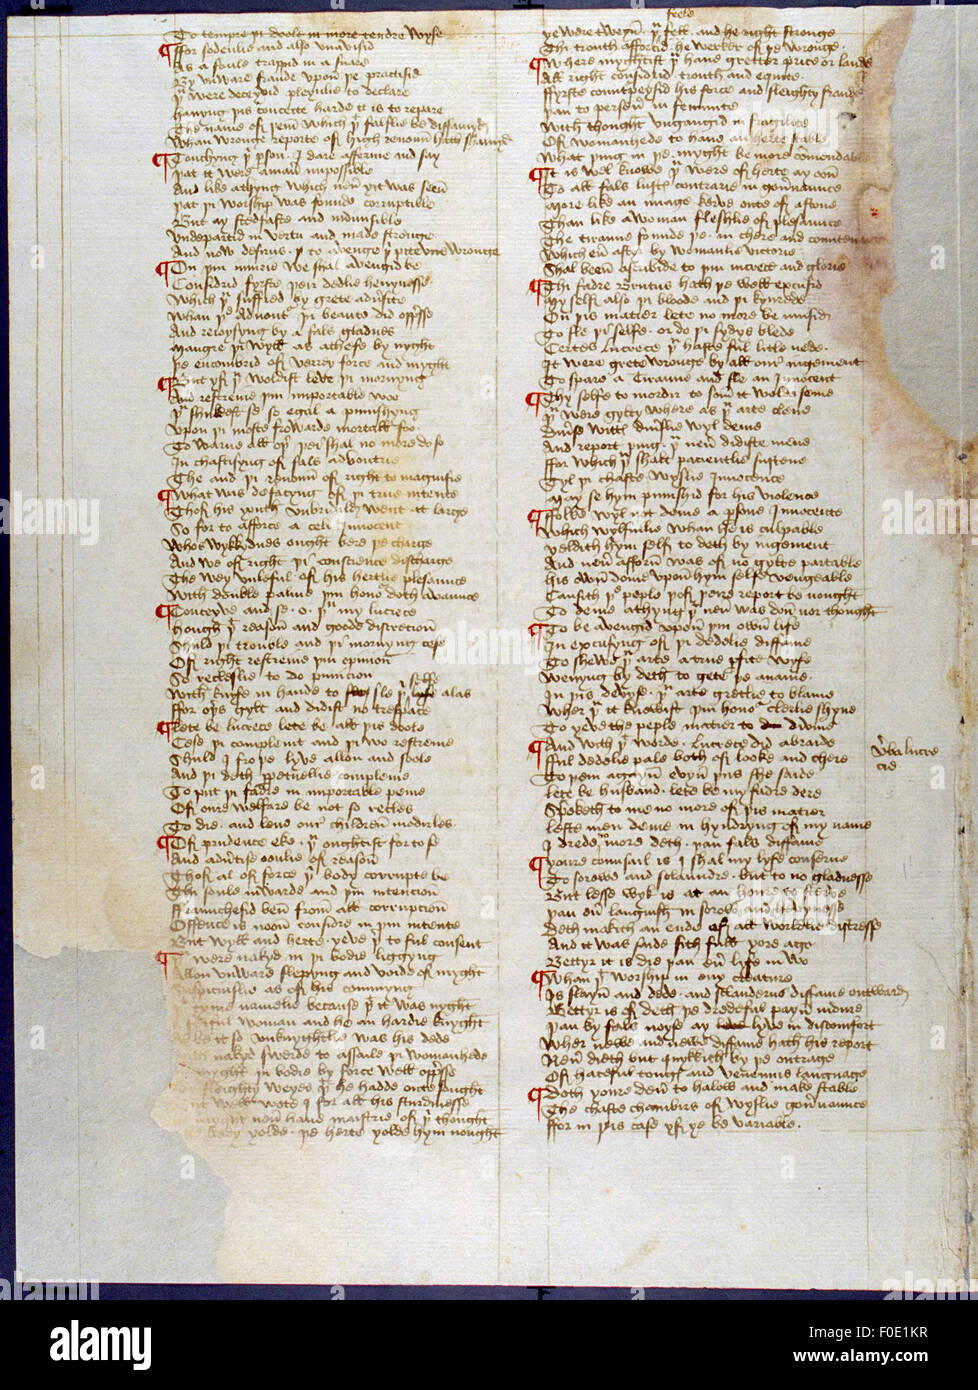 To tempre þi doole in more tendre wyse
ffor sodenlie and also unavisid
As a foule trapid in a snare
By unware fraude upon þe practisid
were deceyvid pleynlie to declare
havyng þis conceite harde it is to repare
The name of þem which falslie be diffamyd
Whan wronge reporte of high renoun hath shamyd
Touchyng þi person I dare afferme and say
þat it were a maner impossible
And like a thyng which never yit was seen
þat þi worship was founde corruptible
But ay stedfaste and indivisible
Undepartid in vertu and made stronge
And now desirus to avenge wronge
On þin iniurie we shal avengid be
Considrid fyrste þeir dedlie hevynesse
Which suffrid by grete
Whan þi beaute did oppresse
And reioysyng by a fals gladnes
Maugre þi wyll as a thefe by nyght
þe encombrid of verrey force and myght
But yf woldist leve þi mornyng
And restreine þin importable woo
shuldest se so egal a punishyng
Upon þi moste frowarde mortall foo
To warne all oþer þei shal no more do so
In chastisyng of fals advoutrie
The and þi renoun of right to magnifie
What was defacyng of þi true intente
Thof his youth unbridaled went at large
So for to afforce a celi Innocent
Whos wykkydnes ought bere þe charge
And we of right þi conscience discharge
The wey unleful of his hertlie plesaunce
With double palme þin honor doth avaunce
Conceyve and se o my lucrece
hough reason and goode discrecioun
Shuld þi trouble and þi mornyng cese
Of right restreine þin opinion
So recleslie to do punicion
With knyfe in hande to sle selfe alas
ffor oþers gylt and didist no trespace
Lete be lucrece lete be all þis doole
Cese þi compleint and þi wo restreine
Shuld I fro þe lyve allon and soole
And þi deth perpetuellie compleine
To put þi fadre in importable peine
Of oure welfare be not so recles
To die and leve our children modirles
Of prudence eke oughtist for to se
And advertise oonlie of reason
Thof al of force body corrupte be
Thi soule inwarde and þin intencion
ffraunchesid been from all corrupcion
Offence is noon considre in þin intente
But wyll and herte yeve to ful consent
were nakyd in þi bedde liggyng
Allon unward slepyng and voide of myght
of his comyng
tyme namelie because it was nyght
ful woman and he an hardie knyght
it so unknyghtlie was his dede
With nakyd swerde to assaile þi womanhede
myght þi bodie by force well oppresse
sleighty weyes he hadde once sought
well wote I for all his sturdinesse
myght never have maistrie of thought
body yolde þe herte yolde hym nought
feele
ye were tweyn fell and he right stronge
Thi trouth afforcid he werker of þe wronge
Where myghtist have gretter price or laude
All right considrid trouth and equite
ffyrste countrepeysid his force and sleighty fraude
þan to perseuer in feminite
With thought unchangid in fragilite
Of womanhede to have an herte stable
What þing in þe myght be more comendable
It is wel knowe were of herte ay oon
To all fals lustes contrarie in governaunce
More like an image kerve onte of a stone
Than like a woman fleshlie of plesaunce
The tiranne founde þe in chere and countenaunce
Which ever after by womanlis victorie
Shal been ascrivide to þin incress and glorie
Thi fadre Brutus hath þe well excusid
My self also þi bloode and þi kynrede
On þis matier lete no more be musid
To sle þi selfe or do þi sydys blede
Certes lucrece haste ful litle nede
It were grete wronge by all our iugement
To spare a tiranne and sle an Innocent
Thy selfe to mordir to som it wold seme
were gylty where as arte clene
Diverse wittes diverslie wyl deme
And report þing never didiste mene
ffor which shalt pacientlie sustene
Tyl þi chaste wyflie Innocence
May se hym punishid for his violence
ffolke wyl not deme a persone Innocente
Which wylfullie whan he is culpable
yeldith hym self to deth by iugement
And never afforn was of no gylte partable
his own dome upon hym selfe vengeable
Causith þe peple þof þeire report be nought
To deme a thyng never was don nor thought
To be avengid upon þin own life
In excusyng of þi dedelie diffame
To shewe arte a true perfite wyfe
Wenyng by deth to gete þe a name
In þis devyse arte gretlie to blame
Wher it knowist þin honor clerlie shyne
To yeve the peple matier to divine
And with worde lucrece did abraide
fful dedelie pale both of looke and chere
To þem agayn evyn þus she saide
Lete be husband lete be my fadre dere
Speketh to me no more of þis matier
Leste men deme in hyndryng of my name
I drede no more deth þan fals diffame
youre counsail is I shal my lyfe conserve
To sorowe and sclaundre but to no gladnesse
But lesse wyk is at an houre to sterve
þan ever langwish in sorow and hevynesse
Deth makith an ende of all worldlie distresse
And it was saide sith full yore ago
Bettyr it is die þan ever life in wo
Whan worship in eny creature
Is slayn and dede and sclaundrus diffame outward
Bettyr is of deth þe dredeful payn indure
þan by fals noyse ay lyve in discomfort
Wher newe and newe diffame hath his report
Never dieth but quykkith by þe outrage
Of hateful tonges and venemus language
Doth youre deuer to halow and make stable
The chaste chambirs of wyflie governaunce
ffor in þis case yf ye be variable
verba lucre
cie
alamy stock photo
F0E1KR
www.alamy.com